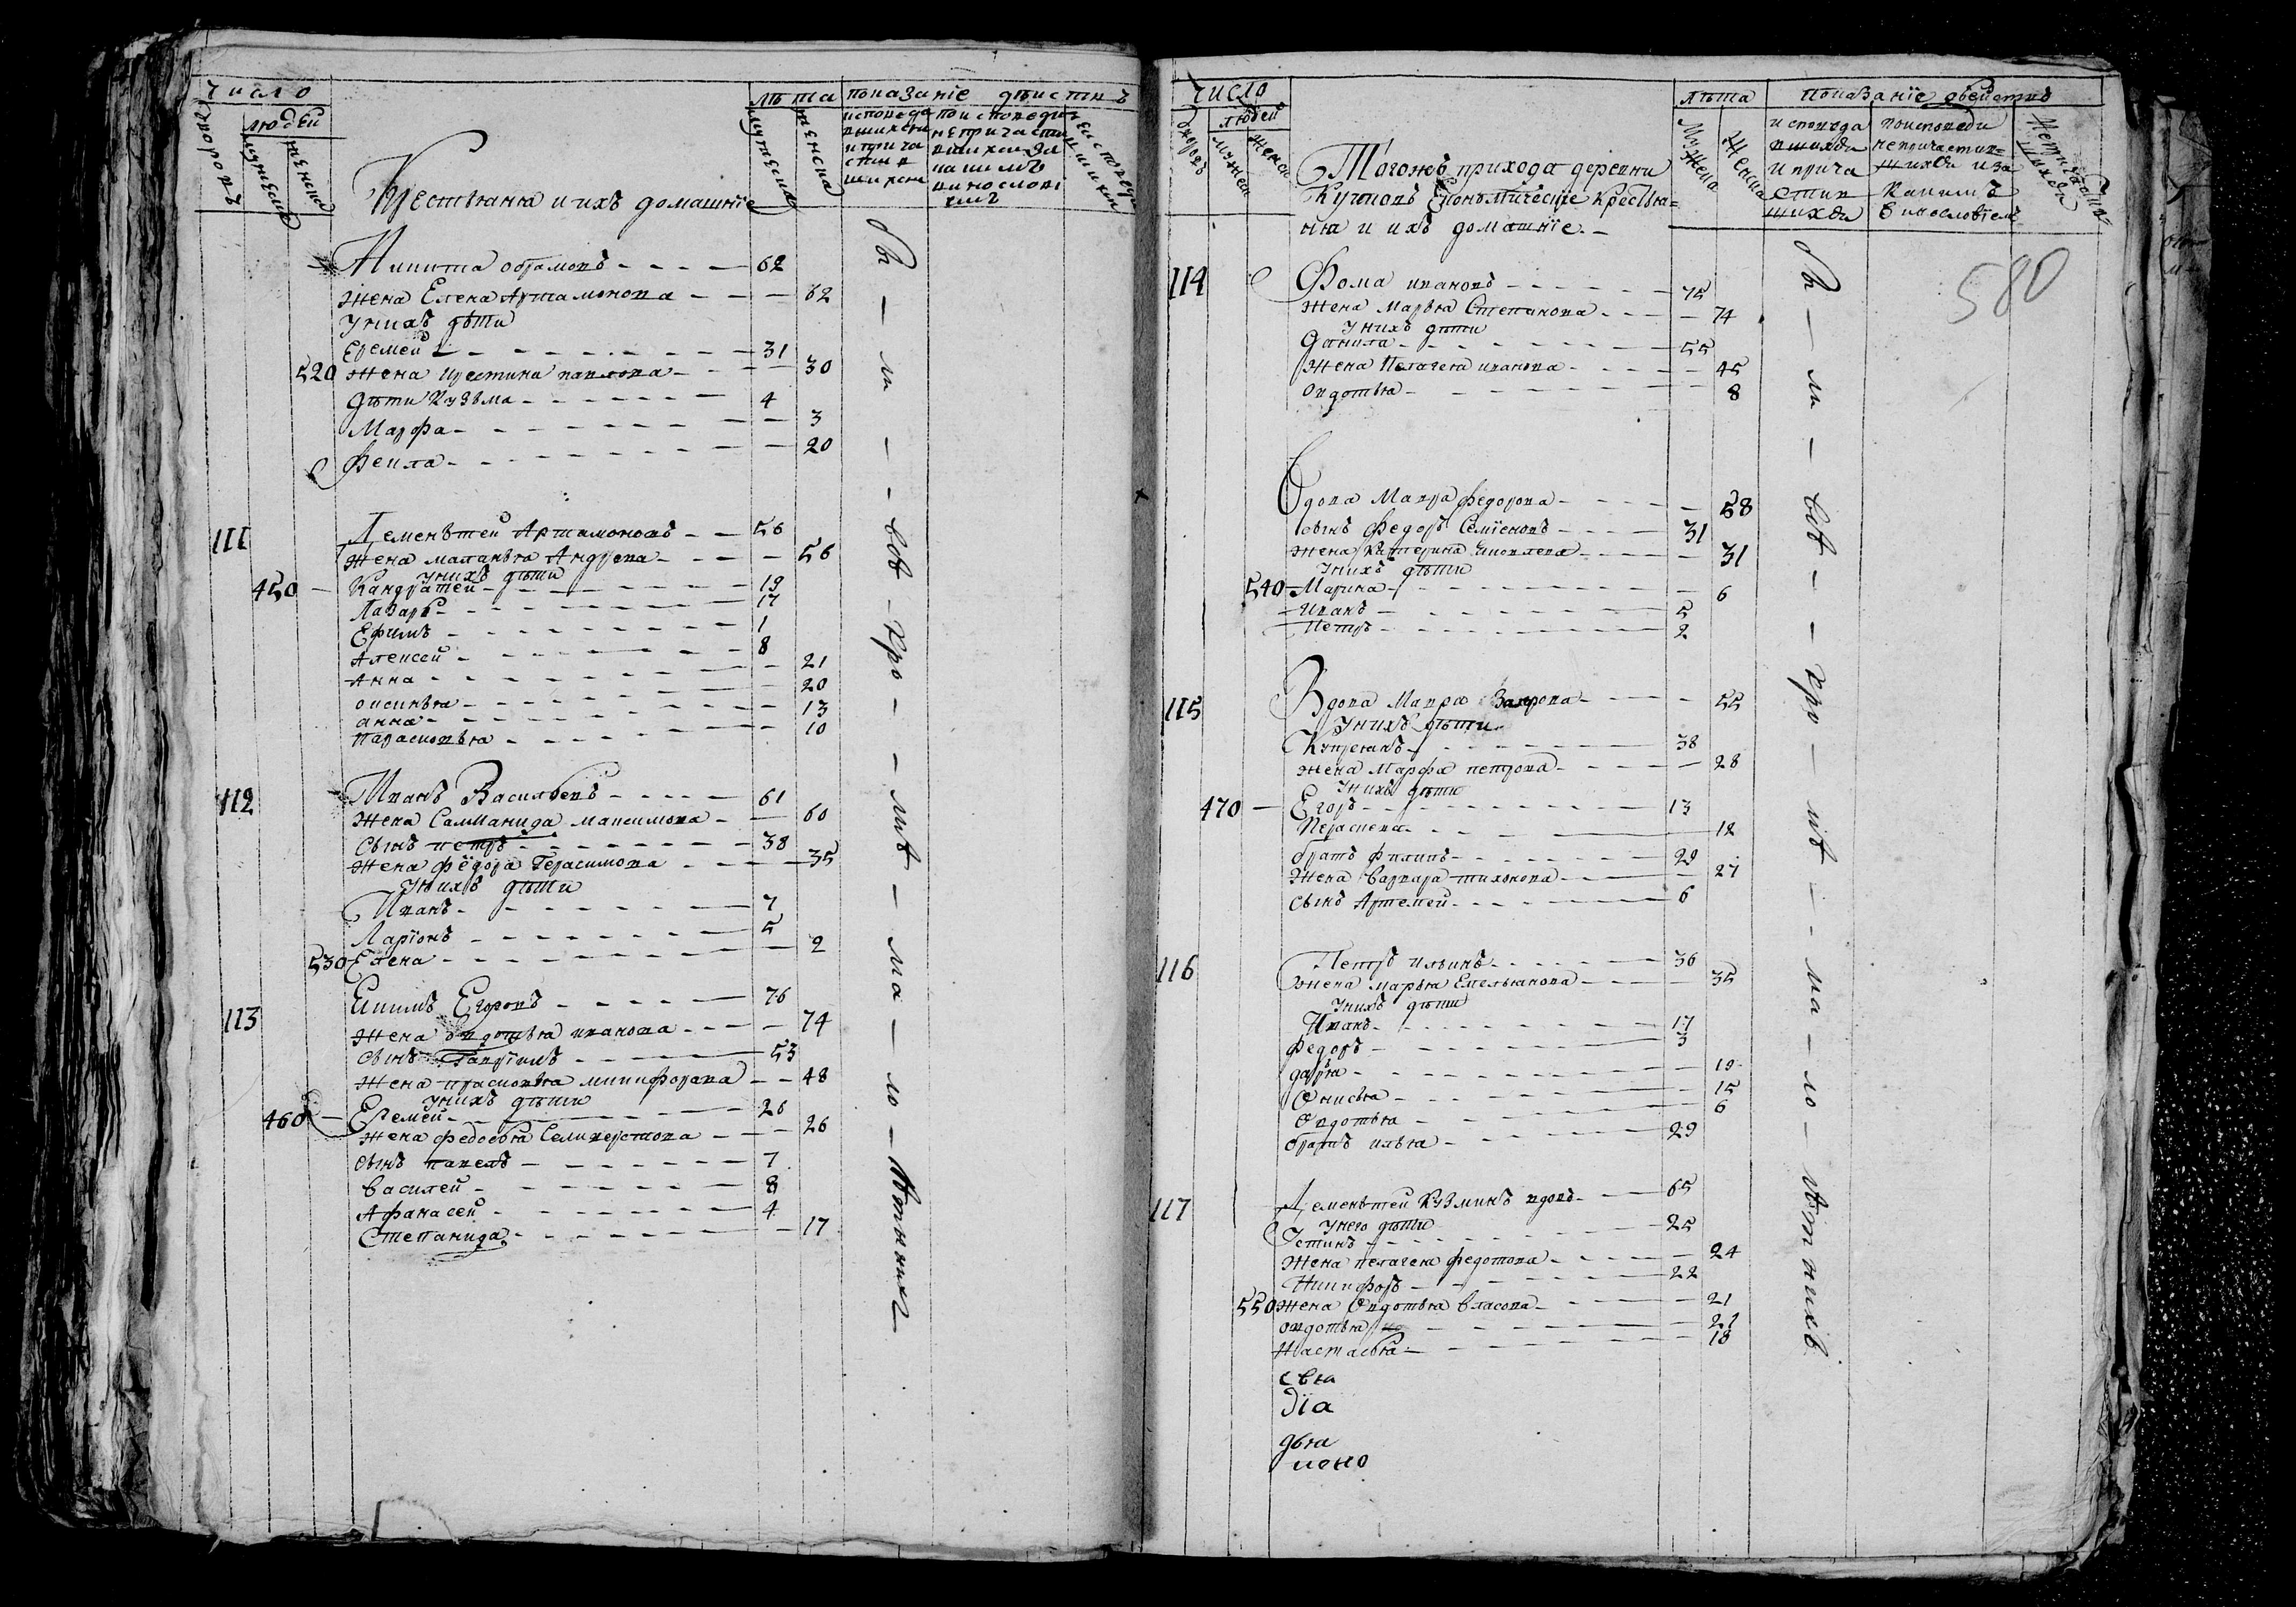 Число
людей
дворовъ
мужеска
женска
лѣта
мужеска
женска
показанїе дѣиствъ
исповеда
вшихся
и прича
стив
шихся
по исповеди
не причасти
вшихся за
какимъ
винослові
емъ
Крестьяня и ихъ домашнїе
Никита обрамовъ - - - - 62
жена Елена Артамонова - - - 62
у нихъ дѣти
Еремей - - - - 31
520 жена Устина павлова - - - 30
дѣти Кузьма - - - - 4
Марфа - - - - 3
Фекла - - - - 20
111 Дементей Артамоновъ - - 56
жена маланья Андреева - - - 56
у нихъ дѣти
450 Кандратей - - - 19
Лазарь - - - 17
Ефимъ - - - 1
Алексей - - - 8
Анна - - - 21
оксинья - - - 20
анна - - - 13
Парасковья - - - 10
112 Иванъ Васильевъ - - - - 61
жена Саламанида максимова - - 60
сынъ петръ - - - 38
жена Фёдора Герасимова - - - 35
у нихъ дѣти
Иванъ - - - 7
Ларїонъ - - - 5
530 Елена - - - 2
113 Екимъ Егоровъ - - - 76
жена овдотья иванова - - - 74
сынъ Гаврїилъ - - - 53
жена прасковья микифорава - - 48
у нихъ дѣти
460 Еремей - - - 26
жена федосья Селиверстова - - - 26
сынъ павелъ - - - 7
василей - - - 8
Афанасей - - - 4
Степанида - - - 17
вѣ - ли - - вов - кро - - мѣ - ма - ло - лѣтныихъ
Число
людей
дворовъ
мужеск
женск
Тогожъ прихода деревни
Кутповъ Економическїе Крестья=
ня и ихъ домашнїе. -
лѣта
Мужеска
Женска
показанїе действъ
исповеда
вшихся
и прича
стив
шихся
по исповеди
не причастив=
шихся и за
какимъ
винословїемъ
580
114 Фома ивановъ - - - 75
жена марья Степанова - - - 74
у нихъ дѣти
Данила - - - 55
жена Пелагея иванова - - - 45
овдотья - - - 8
Вдова Мавра федорова - - - 58
сынъ федоръ Семїеновъ - - - 31
жена Катерина Яковлева - - - 31
у нихъ дѣти
540 Марина - - - 6
Иванъ - - - 5
Петръ - - - 2
115 Вдова Мавра Захарова - - - 55
у нихъ дѣти
Купреянъ - - - 38
жена Марфа петрова - - - 28
у нихъ дѣти
470 - Егоръ - - - 13
Пераскева - - - 12
братъ филипъ - - - 29
жена варвара тихонова - - - 27
сынъ Артемей - - - 6
116 Петръ ильинъ - - - 36
жена марья Емельянова - - - 35
у нихъ дѣти
Иванъ - - - 17
федоръ - - - 3
дарья - - - 19
Онисья - - - 15
Овдотья - - - 6
братъ илья - - - 29
117 Дементей Кузминъ вдовъ - - - 65
у него дѣти
Устинъ - - - 25
жена пелагея федотова - - - 24
Никифоръ - - - 22
550 жена Овдотья власова - - - 21
овдотья - - - 21
Настасья - - - 18
свя
дїа
дья
коно
вѣ - ли - вов - - кро - мѣ - - ма - ло - лѣтнихъ